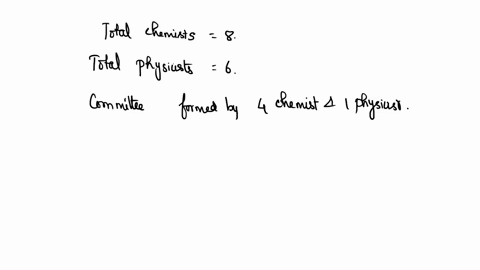 Total chemists = 8.
Total physicists = 6.
Committee formed by 4 chemist & 1 physicist.